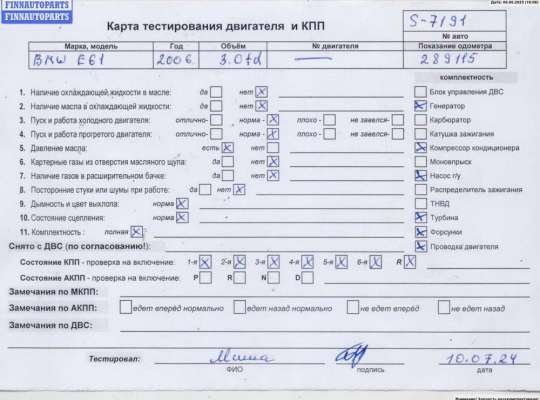 FINNAUTOPARTS
FINNAUTOPARTS
Карта тестирования двигателя и КПП
S-7191
№ авто
Марка, модель Год Объём № двигателя Показание одометра
BMW E61 2006 3.0td — 289115
комплектность
1. Наличие охлаждающей жидкости в масле: да нет X
2. Наличие масла в охлаждающей жидкости: да нет X
3. Пуск и работа холодного двигателя: отлично- норма - X плохо - не завелся-
4. Пуск и работа прогретого двигателя: отлично- норма - X плохо - не завелся-
5. Давление масла: есть X нет
6. Картерные газы из отверстия масляного щупа: да нет X
7. Наличие газов в расширительном бачке: да нет X
8. Посторонние стуки или шумы при работе: да нет X
9. Дымность и цвет выхлопа: норма X
10. Состояние сцепления: норма X
11. Комплектность : полная X
Блок управления ДВС
X Генератор
Карбюратор
Катушка зажигания
X Компрессор кондиционера
Моновпрыск
X Насос г/у
Распределитель зажигания
ТНВД
X Турбина
X Форсунки
X Проводка двигателя
Снято с ДВС (по согласованию!):
Состояние КПП - проверка на включение: 1-я X 2-я X 3-я X 4-я X 5-я X 6-я X R X
Состояние АКПП - проверка на включение: P R N D
Замечания по МКПП:
Замечания по АКПП: едет вперёд нормально едет назад нормально не едет вперёд не едет назад
Замечания по ДВС:
Тестировал: Миша 10.07.24
ФИО подпись дата